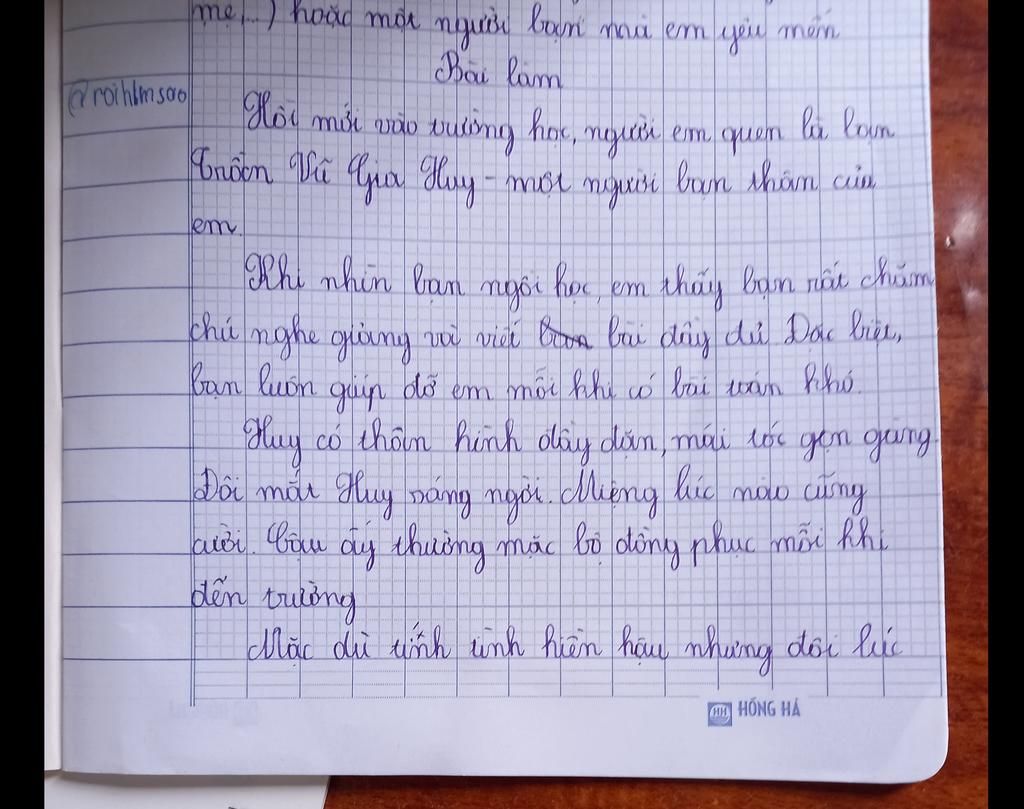 mẹ,...) hoặc một người bạn mà em yêu mến
Bài làm
@roihlmsao
Hồi mới vào trường học, người em quen là bạn
Trần Vũ Gia Huy - một người bạn thân của
em.
Khi nhìn bạn ngồi học, em thấy bạn rất chăm
chú nghe giảng và viết bài đầy đủ Đặc biệt,
bạn luôn giúp đỡ em mỗi khi có bài toán khó.
Huy có thân hình đầy đặn, mái tóc gọn gàng.
Đôi mắt Huy sáng ngời. Miệng lúc nào cũng
cười. Cậu ấy thường mặc bộ đồng phục mỗi khi
đến trường
Mặc dù tính tình hiền hậu nhưng đôi lúc
HH HỒNG HÀ